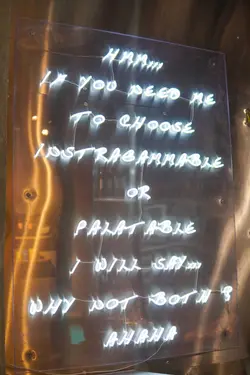 HMM...
IF YOU NEED ME
TO CHOOSE
INSTRAGAMMABLE
OR
PALATABLE
I WILL SAY...
WHY NOT BOTH ?
AHAHA